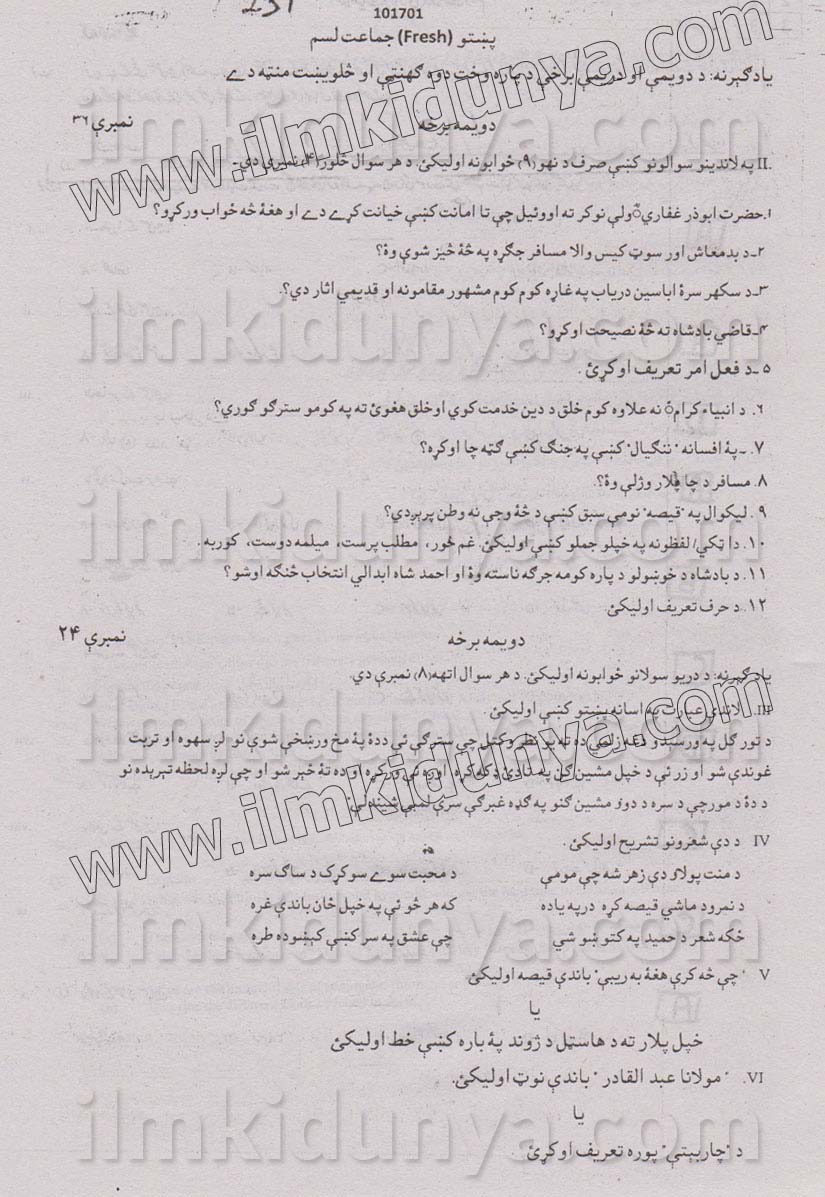 101701
پښتو (Fresh) جماعت لسم
یادګېرنه: د دویمې او دریمې برخې د پاره وخت دوه ګهنټې او څلویښت منټه دے
دویمه برخه نمبرې ۳۶
II. په لاندینو سوالونو کښې صرف د نهو (۹) ځوابونه اولیکئ. د هر سوال څلور (۴) نمبرې دي۔
۱. حضرت ابوذر غفاريؓ ولې نوکر ته اووئیل چې تا امانت کښې خیانت کړے دے او هغۀ څه ځواب ورکړو؟
۲۔ د بدمعاش اور سوټ کیس والا مسافر جګړه په څۀ څیز شوې وۀ؟
۳۔ د سکهر سرۀ اباسین دریاب په غاړه کوم کوم مشهور مقامونه او قدیمي اثار دي؟.
۴۔ قاضي بادشاه ته څۀ نصیحت اوکړو؟
۵۔ د فعل امر تعریف اوکړئ .
۶. د انبیاء کرامؑ نه علاوه کوم خلق د دین خدمت کوي اوخلق هغوئ ته په کومو سترګو ګوري؟
۷. ۔پۀ افسانه "ننګیال" کښې په جنګ کښې ګټه چا اوکړه؟
۸. مسافر د چا پلار وژلې وۀ؟.
۹. لیکوال په "قیصه" نومې سبق کښې د څۀ وجې نه وطن پرېږدي؟
۱۰. دا ټکي/ لفظونه په خپلو جملو کښې اولیکئ. غم خور، مطلب پرست، میلمه دوست، کوربه .
۱۱. د بادشاه د خوښولو د پاره کومه جرګه ناسته وۀ او احمد شاه ابدالي انتخاب څنګه اوشو؟
۱۲. د حرف تعریف اولیکئ.
دویمه برخه نمبرې ۲۴
یادګېرنه: د دریو سولانو ځوابونه اولیکئ. د هر سوال اتهه (۸) نمبرې دي.
III. لاندې عبارت په اسانه پښتو کښې اولیکئ .
د تور ګل په ورسېدو دغه زلمي ده ته یو نظر وکتل چې سترګې ئې ددۀ پۀ مخ ورښخې شوې نو لږ سهوه او ترپت
غوندې شو او زر ئې د خپل مشین ګن په تادئ ډکه کړه اوره ئې ورکړه او ده تۀ ځېر شو او چې لږه لحظه تېرېده نو
د دۀ د مورچې د سره د دوؤ مشین ګنو په ګډه غبرګې سرې لمبې شیندلې"
IV د دې شعرونو تشریح اولیکئ .
د منت پولاؤ دې زهر شه چې مومې د محبت سوے سوکړک د ساګ سره
د نمرود ماشي قیصه کړه درپه یاده که هر څو ئې په خپل ځان باندې غره
ځکه شعر د حمید په کتو ښو شي چې عشق په سر کښې کېښوده طره
V "چې څه کرې هغۀ به ریبې" باندې قیصه اولیکئ.
یا
خپل پلار ته د هاسټل د ژوند پۀ باره کښې خط اولیکئ
VI. "مولانا عبد القادر" باندې نوټ اولیکئ.
یا
د "چاربیتې" پوره تعریف اوکړئ
www.ilmkidunya.com
www.ilmkidunya.com
ilmkidunya.com
ilmkidunya.com
ilmkidunya.com
ilmkidunya.com
ilmkidunya.com
ilmkidunya.com